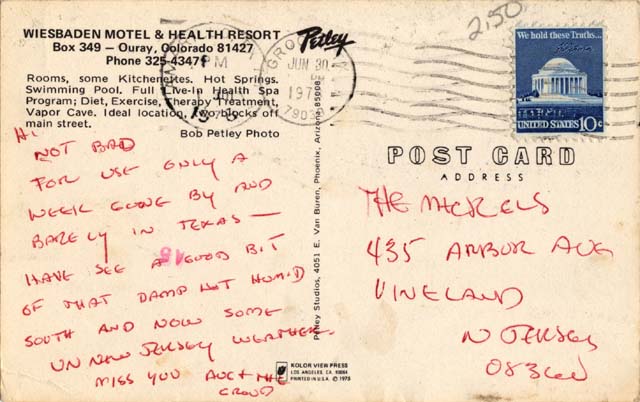 WIESBADEN MOTEL & HEALTH RESORT
Box 349 — Ouray, Colorado 81427
Phone 325-4347
Rooms, some Kitchenettes. Hot Springs.
Swimming Pool. Full Live-In Health Spa
Program; Diet, Exercise, Therapy Treatment,
Vapor Cave. Ideal location, two blocks off
main street.
Bob Petley Photo
Petley
2.50
PM
JUN 30
PM
197
We hold these Truths...
UNITED STATES 10c
POST CARD
ADDRESS
Hi
NOT BAD
FOR USE ONLY A
WEEK GONE BY AND
BARELY IN TEXAS —
HAVE SEE A GOOD BIT
OF THAT DAMP HOT HUMID
SOUTH AND NOW SOME
UN NEW JERSEY WEATHER.
MISS YOU
CROWD
THE
435 ARBOR AVE
VINELAND
N JERSEY
Petley Studios, 4051 E. Van Buren, Phoenix, Arizona 85008
KOLOR VIEW PRESS
LOS ANGELES, CA. 90064
PRINTED IN U.S.A. © 1975